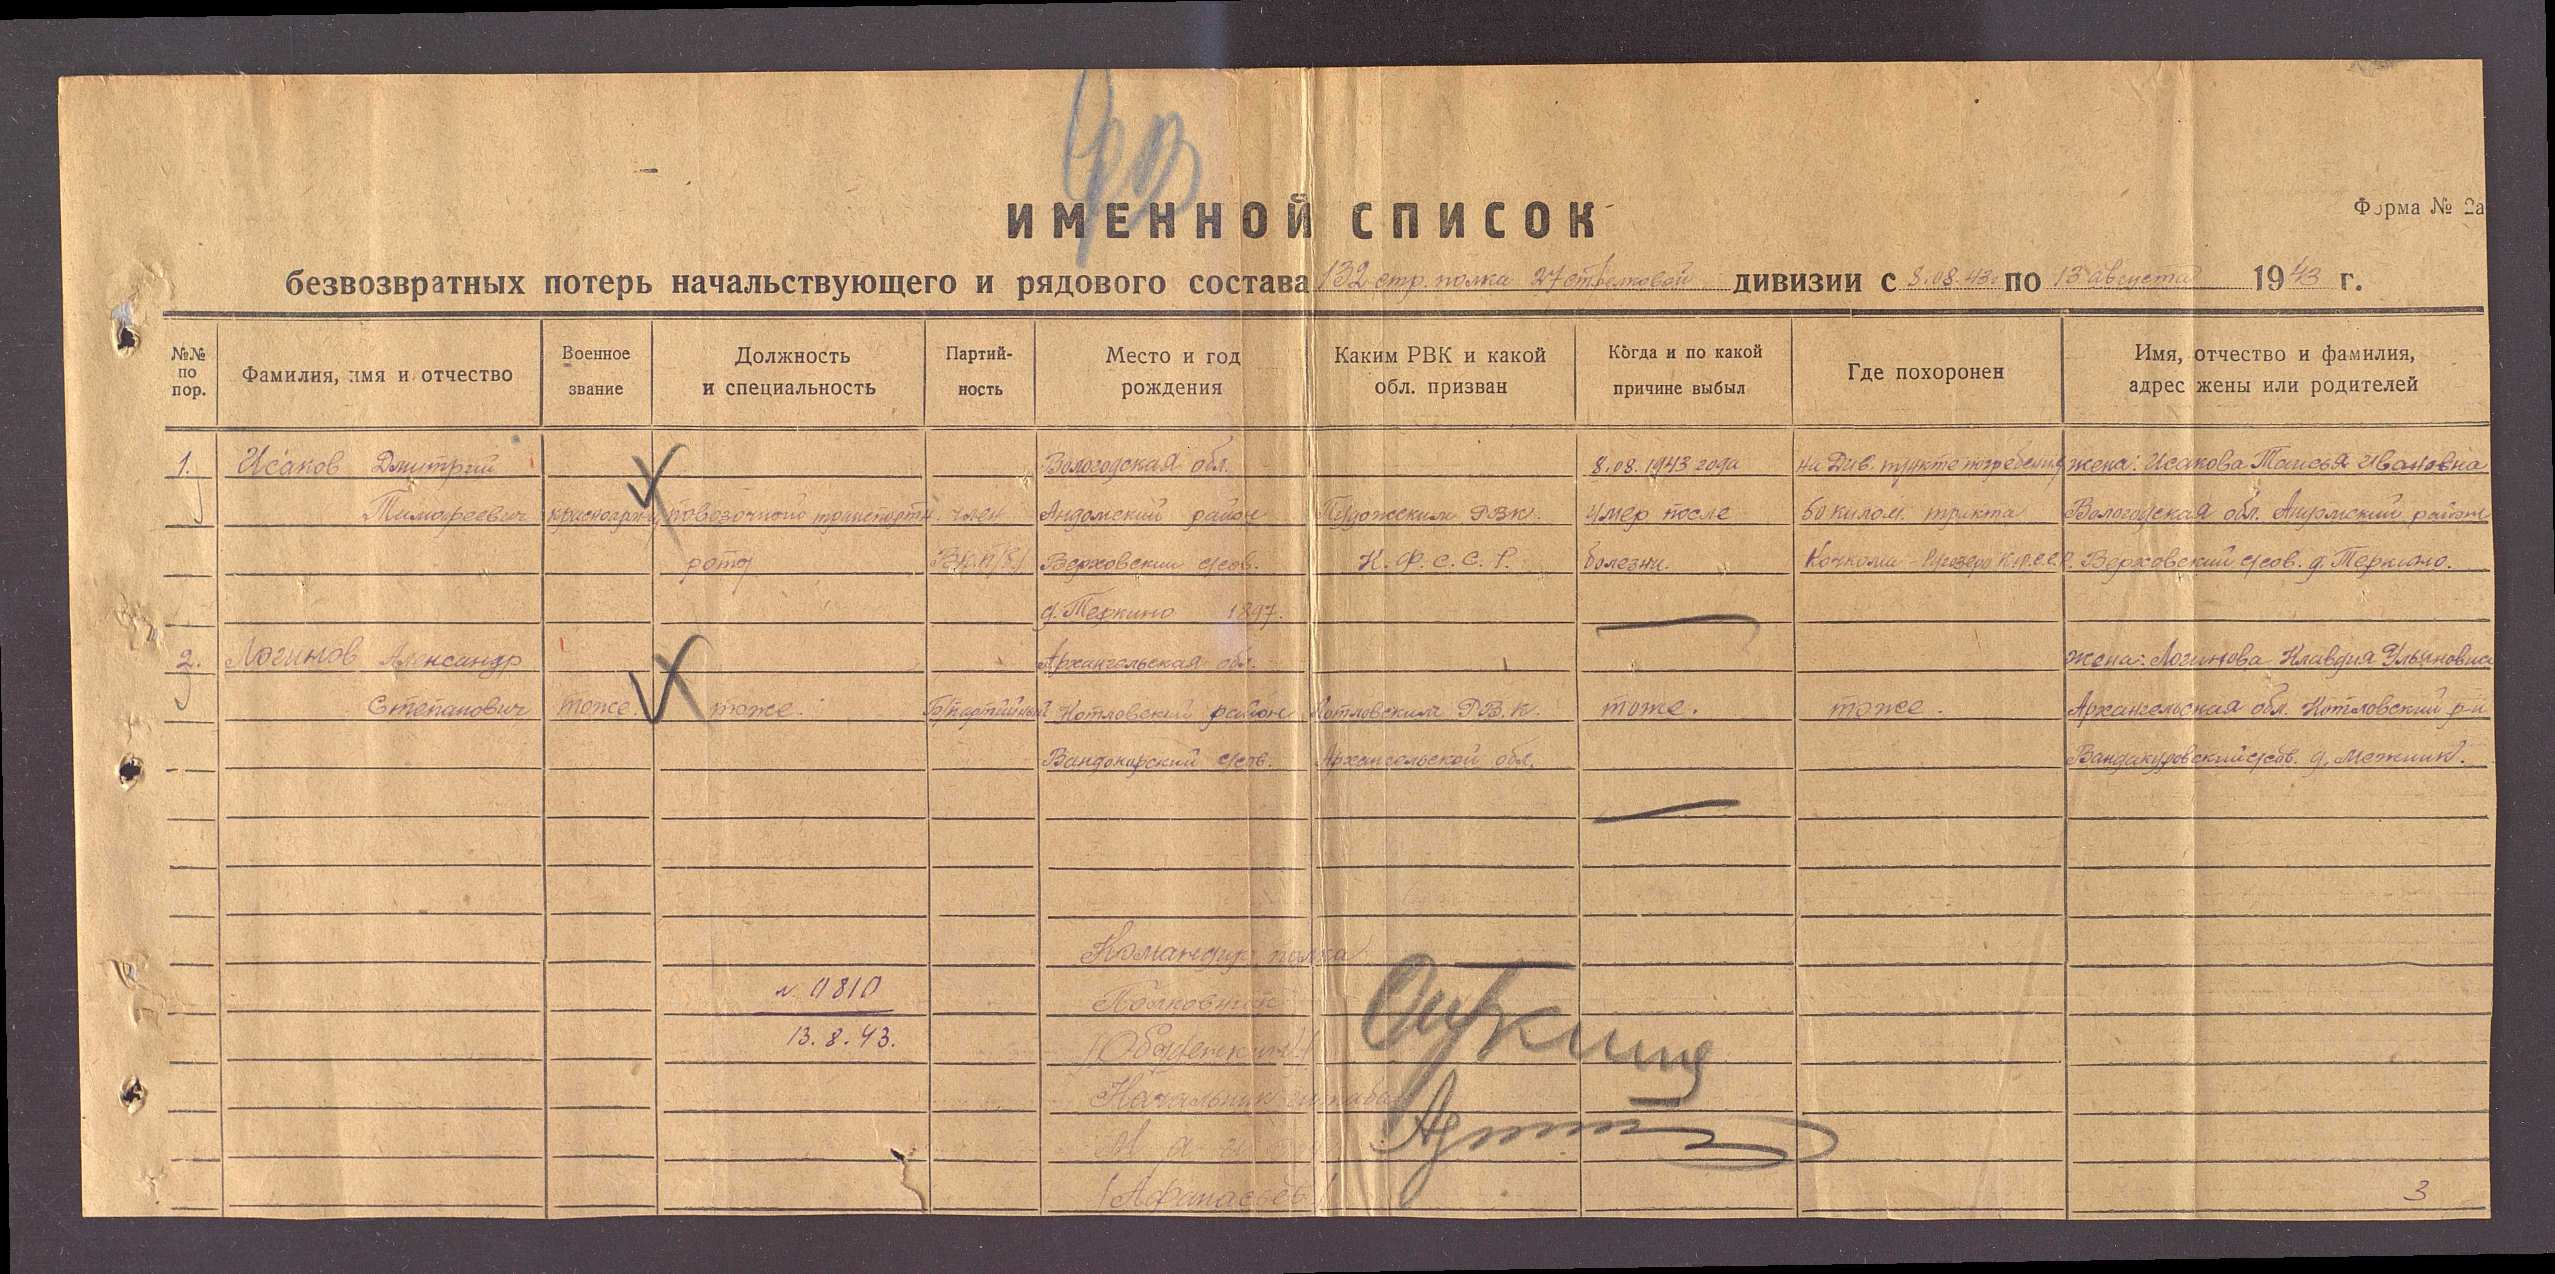 ИМЕННОЙ СПИСОК
Форма № 2а
безвозвратных потерь начальствующего и рядового состава 132 стр. полка 27 стрелковой дивизии с 8.08.43г. по 13 августа 1943 г.
№№ по пор.
Фамилия, имя и отчество
Военное звание
Должность и специальность
Партийность
Место и год рождения
Каким РВК и какой обл. призван
Когда и по какой причине выбыл
Где похоронен
Имя, отчество и фамилия, адрес жены или родителей
1. Исаков Дмитрий Вологодская обл. 8.08.1943 года на Див. пункте погребения жена: Исакова Таисья Ивановна
Тимофеевич красноарм. повозочного транспортн. член Андомский район Пудожским РВК. умер после 60 килом. тракта Вологодская обл. Андомский район
роты ВКП(б) Верховский с/сов. К.Ф.С.С.Р. болезни. Кочкома - Ругозеро К.Ф.С.С.Р. Верховский с/сов. д. Теркино.
д. Теркино 1897.
2. Логинов Александр Архангельская обл. жена: Логинова Клавдия Ульяновна
Степанович тоже. тоже. б/партийный Котловский район Котловским Р.В.К. тоже. тоже. Архангельская обл. Котловский р-н
Вандокурский с/сов. Архангельской обл. Вандакуровский с/сов. д. Межник.
Командир полка
N 0810
Полковник
13.8.43.
Начальник штаба
/Афанасьев/
3